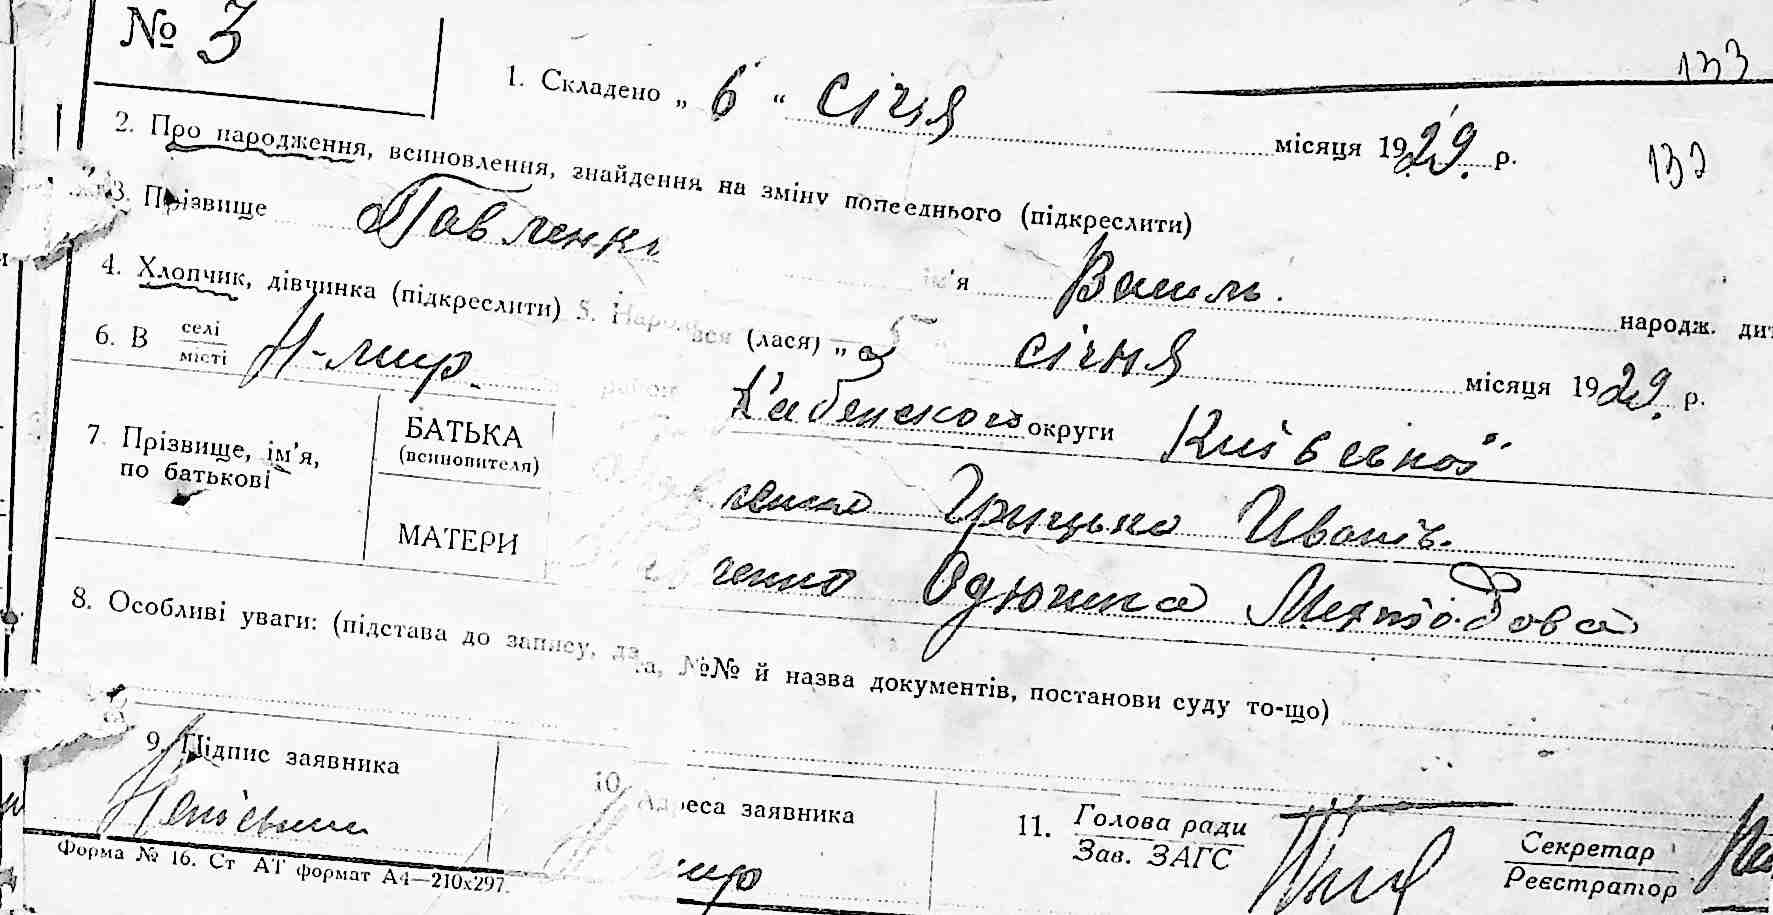 № 3
133
1. Складено „ 6 “ січня місяця 1929. р.
132
2. Про народження, всиновлення, знайдення на зміну попееднього (підкреслити)
3. Прізвище Павленко ім'я Василь.
народж. дит
4. Хлопчик, дівчинка (підкреслити) 5. Народився (лася) „ 5 “ січня місяця 1929. р.
6. В селі місті Н-мир. район Кабенского округи Київської
7. Прізвище, ім'я, по батькові
БАТЬКА (всиновителя) Павленко Грицько Иванів.
МАТЕРИ Павленко Одюшка
8. Особливі уваги: (підстава до запису, дата, №№ й назва документів, постанови суду то-що)
9. Підпис заявника
10. Адреса заявника
Н-мир
11. Голова ради
Зав. ЗАГС
Секретар
Реєстратор
Форма № 16. Ст АТ формат А4—210х297.